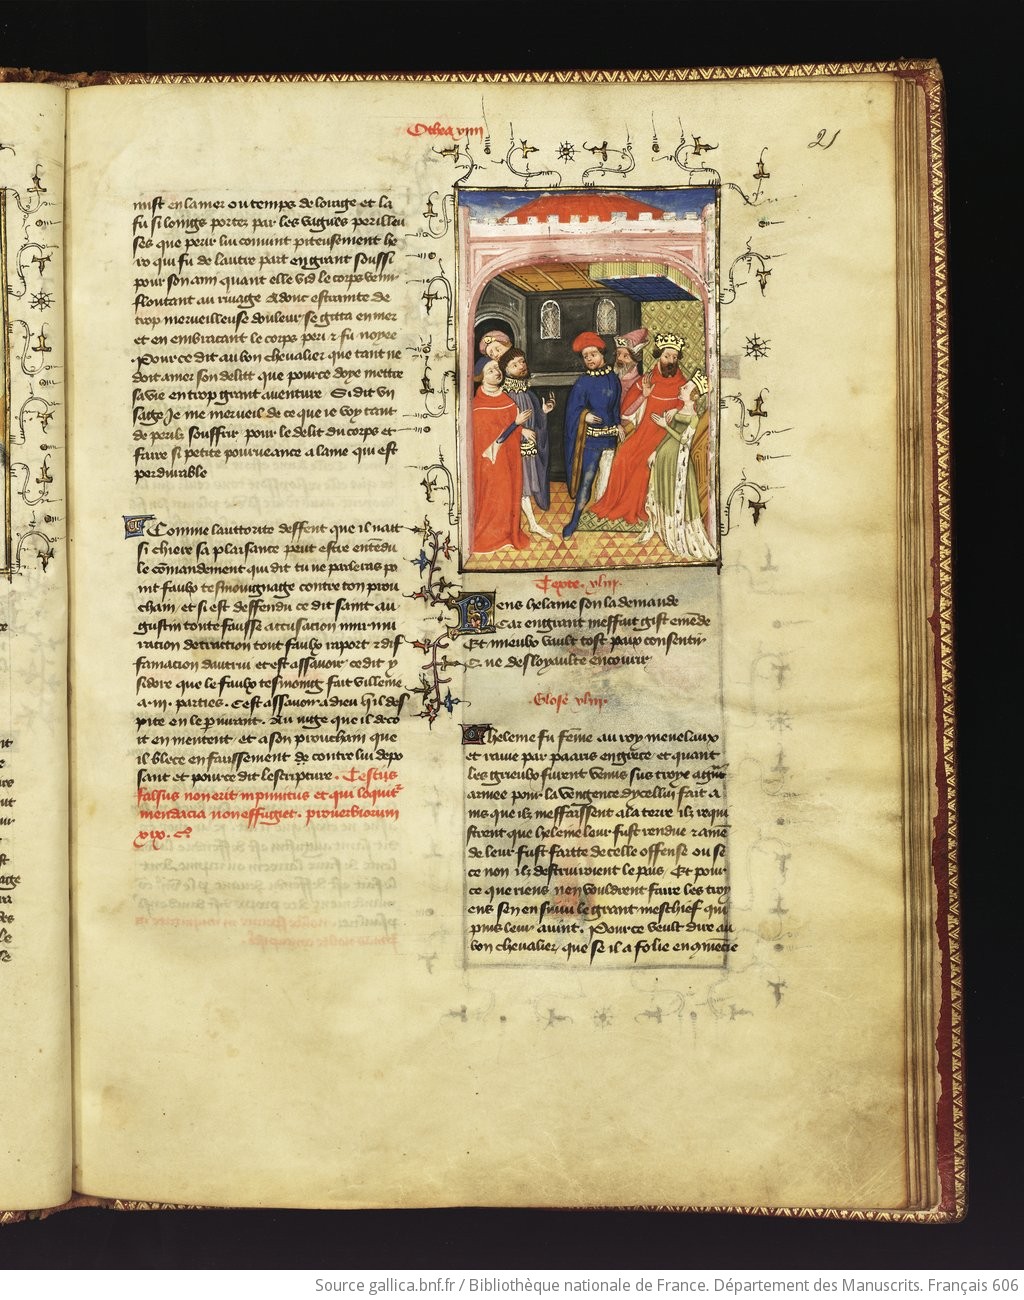 Othea xliiij
21
mist en la mer ou temps de lorage et la
fu si loings portez par les vagues perilleu
ses que perir lui convint piteusement he
ro qui fu de lautre part en grant soussi
pour son ami quant elle vid le corps veni
flontant au rivage Adonc estrainte de
trop merveilleuse douleur se gitta en mer
et en embracant le corps peri et fu noyee
Pour ce dit au bon chevalier que tant ne
doit amer son delitt que pour ce doye mettre
sa vie en trop grant aventure Si dit un
sage Je me merveil de ce que ie voy tant
de perilz souffrir pour le delit du corps et
faire si petite pourveance a lame qui est
perdurable
Comme lauttorite deffent que il nait
si chiere sa plaisance peut estre entendu
le commandement qui dit tu ne parleras po
int faulx tesmoingnage contre ton prou
chain et si est deffendu ce dit saint au
gustin toute fausse accusacion murmu
racion detraction tout faulx raport et dif
famacion dautrui et est assavoir ce dit y
sidore que le faulx tesmoing fait villenie
a .iij. parties. Cest assavoir a dieu quil des
pite en le perjurant. Au iuge que il deco
it en mentent et a son prouchain que
il blece en faussement contre lui depo
sant et pour ce dit lescripture. Testis
falsus non erit inpunitus et qui loquitur
mendacia non effugiet. proverbiorum
xix. c.
Texte .xliij.
Rens helaine son la demande
Car en grant meffait gist emende
Et mieulx vault tost paix consentir
Que desloyaulte encourir
Glose xliij.
heleine fu femme au roy menelaux
et ravie par paaris en grece et quant
les grieux furent venus sus troye a grant
armee pour la vengence dycellui fait a
ins que ilz meffaissent a la terre ilz requi
strent que heleine leur fust rendue et amen
de leur fust faitte de celle offense ou se
ce non ilz destruiroient le pais. Et pour
ce que riens nen vouldrent faire les troy
ens sen ensuivi le grant meschief qui
puis leur avint. Pour ce veult dire au
bon chevalier que se il a folie enquencie
Source gallica.bnf.fr / Bibliothèque nationale de France. Département des Manuscrits. Français 606